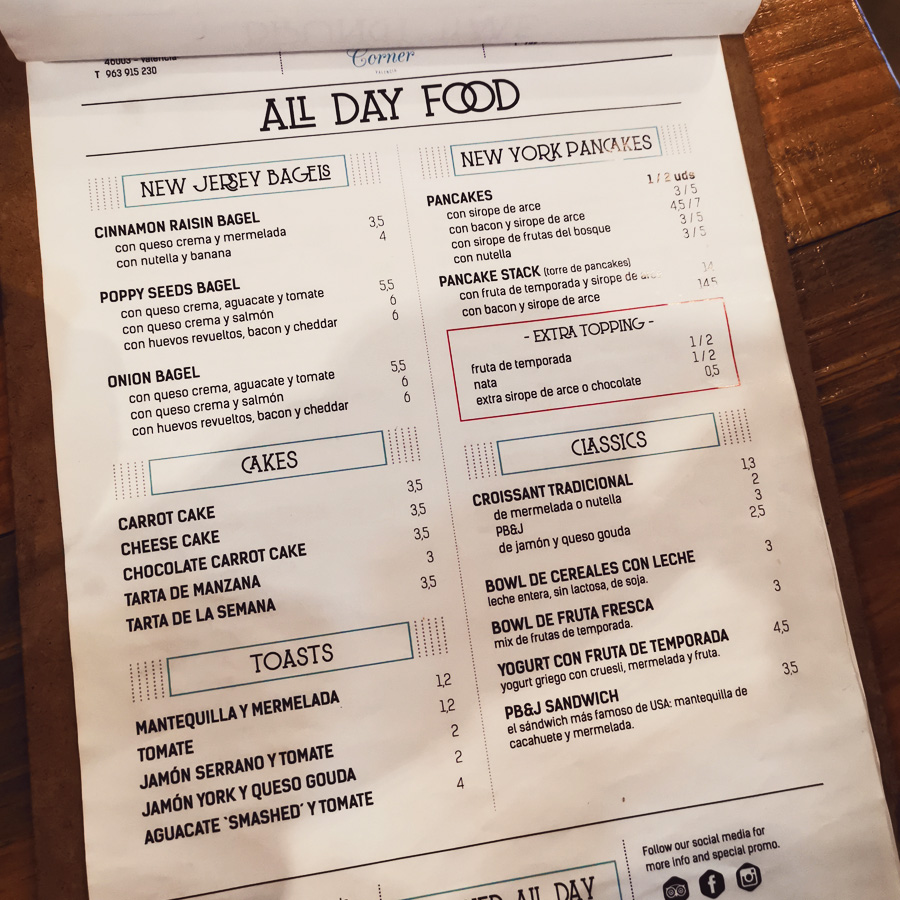 46003 - Valencia
T 963 915 230
Corner
VALENCIA
ALL DAY FOOD
NEW JERSEY BAGELS
CINNAMON RAISIN BAGEL
con queso crema y mermelada 3,5
con nutella y banana 4
POPPY SEEDS BAGEL
con queso crema, aguacate y tomate 5,5
con queso crema y salmón 6
con huevos revueltos, bacon y cheddar 6
ONION BAGEL
con queso crema, aguacate y tomate 5,5
con queso crema y salmón 6
con huevos revueltos, bacon y cheddar 6
CAKES
CARROT CAKE 3,5
CHEESE CAKE 3,5
CHOCOLATE CARROT CAKE 3,5
TARTA DE MANZANA 3
TARTA DE LA SEMANA 3,5
TOASTS
MANTEQUILLA Y MERMELADA 1,2
TOMATE 1,2
JAMÓN SERRANO Y TOMATE 2
JAMÓN YORK Y QUESO GOUDA 2
AGUACATE 'SMASHED' Y TOMATE 4
NEW YORK PANCAKES
PANCAKES 1 / 2 uds
con sirope de arce 3 / 5
con bacon y sirope de arce 4,5 / 7
con sirope de frutas del bosque 3 / 5
con nutella 3 / 5
PANCAKE STACK (torre de pancakes)
con fruta de temporada y sirope de 14
con bacon y sirope de arce 14,5
- EXTRA TOPPING -
fruta de temporada 1 / 2
nata 1 / 2
extra sirope de arce o chocolate 0,5
CLASSICS
CROISSANT TRADICIONAL 1,3
de mermelada o nutella 2
PB&J 3
de jamón y queso gouda 2,5
BOWL DE CEREALES CON LECHE 3
leche entera, sin lactosa, de soja.
BOWL DE FRUTA FRESCA 3
mix de frutas de temporada.
YOGURT CON FRUTA DE TEMPORADA 4,5
yogurt griego con cruesli, mermelada y fruta.
PB&J SANDWICH 3,5
el sándwich más famoso de USA: mantequilla de
cacahuete y mermelada.
ALL DAY
Follow our social media for
more info and special promo.